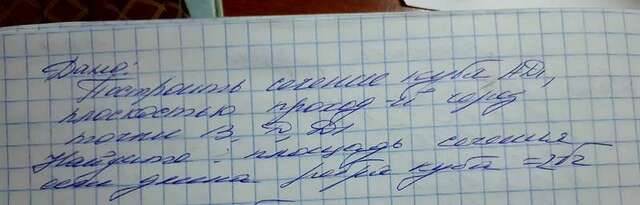 Дано:
Построить сечение куба AD₁,
плоскостью проход-й через
точки B и D₁
Найдите: площадь сечения
если длина ребра куба = 2√2